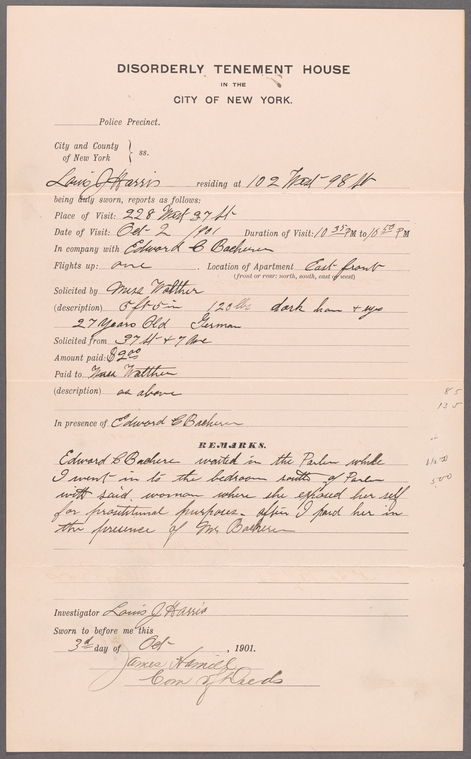 DISORDERLY TENEMENT HOUSE
IN THE
CITY OF NEW YORK.
Police Precinct.
City and County
of New York } ss.
Louis J Harris residing at 102 West 98 St
being duly sworn, reports as follows:
Place of Visit: 228 West 37 St
Date of Visit: Oct 2 1901 Duration of Visit: 10 35 PM to 10 50 PM
In company with Edward C Bacherer
Flights up: one Location of Apartment East front
(front or rear: north, south, east or west)
Solicited by Miss Walther
(description) 5 ft 5 in 120 lbs dark hair + eyes
27 Years Old German
Solicited from 37 St + 7 Ave
Amount paid: $2.00
Paid to Miss Walther
(description) as above
85
135
In presence of Edward C Bacherer
REMARKS.
Edward C Bachere waited in the Parlor while
I went in to the bedroom south of Parlor
with said woman where she exposed her self
for prostitutional purposes. after I paid her in
the presence of Mr Bacherer
500
Investigator Louis J Harris
Sworn to before me this
3d day of Oct , 1901.
James Hamill
Com of Deeds